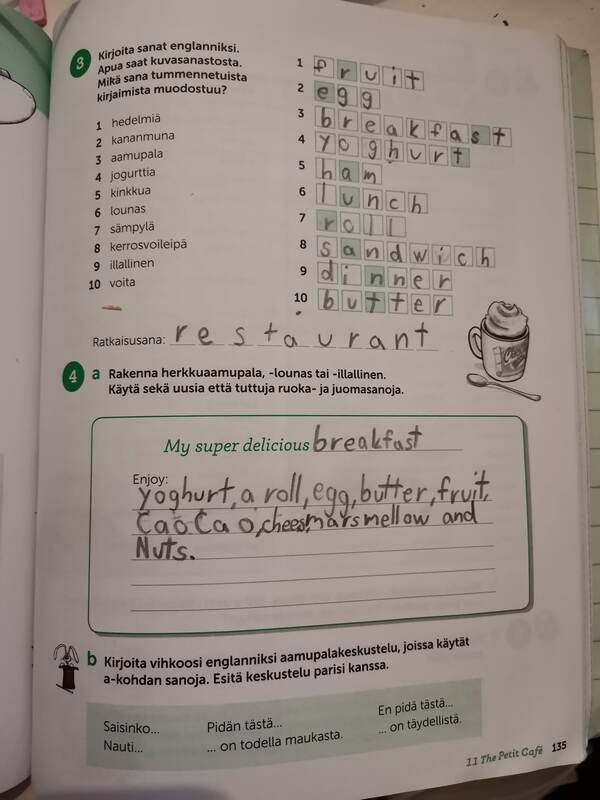 3 Kirjoita sanat englanniksi.
Apua saat kuvasanastosta.
Mikä sana tummennetuista
kirjaimista muodostuu?
1 hedelmiä
2 kananmuna
3 aamupala
4 jogurttia
5 kinkkua
6 lounas
7 sämpylä
8 kerrosvoileipä
9 illallinen
10 voita
1 fruit
2 egg
3 breakfast
4 yoghurt
5 ham
6 lunch
7 roll
8 sandwich
9 dinner
10 butter
Ratkaisusana: restaurant
4 a Rakenna herkkuaamupala, -lounas tai -illallinen.
Käytä sekä uusia että tuttuja ruoka- ja juomasanoja.
My super delicious breakfast
Enjoy:
yoghurt, a roll, egg, butter, fruit,
CaoCao, chees, marsmellow and
Nuts.
b Kirjoita vihkoosi englanniksi aamupalakeskustelu, joissa käytät
a-kohdan sanoja. Esitä keskustelu parisi kanssa.
Saisinko... Pidän tästä... En pidä tästä...
Nauti... ... on todella maukasta. ... on täydellistä.
11 The Petit Café 135